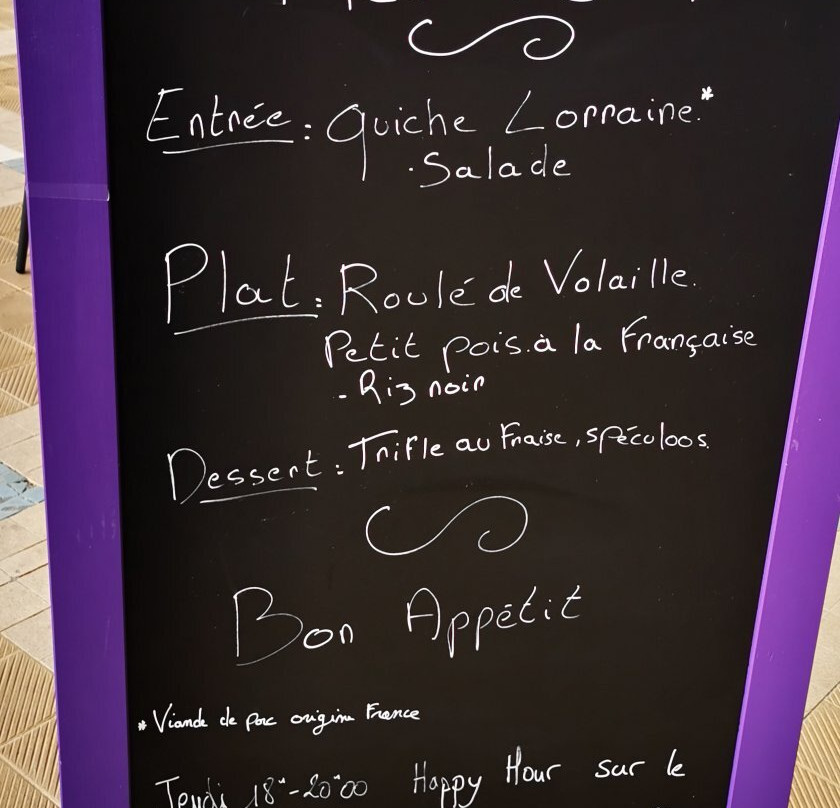 Entrée : Quiche Lorraine.*
. Salade
Plat : Roulé de Volaille.
Petit pois à la Française
- Riz noir
Dessert : Trifle au Fraise, spéculoos.
Bon Appétit
* Viande de porc origine France
Jeudi 18H-20H00 Happy Hour sur le